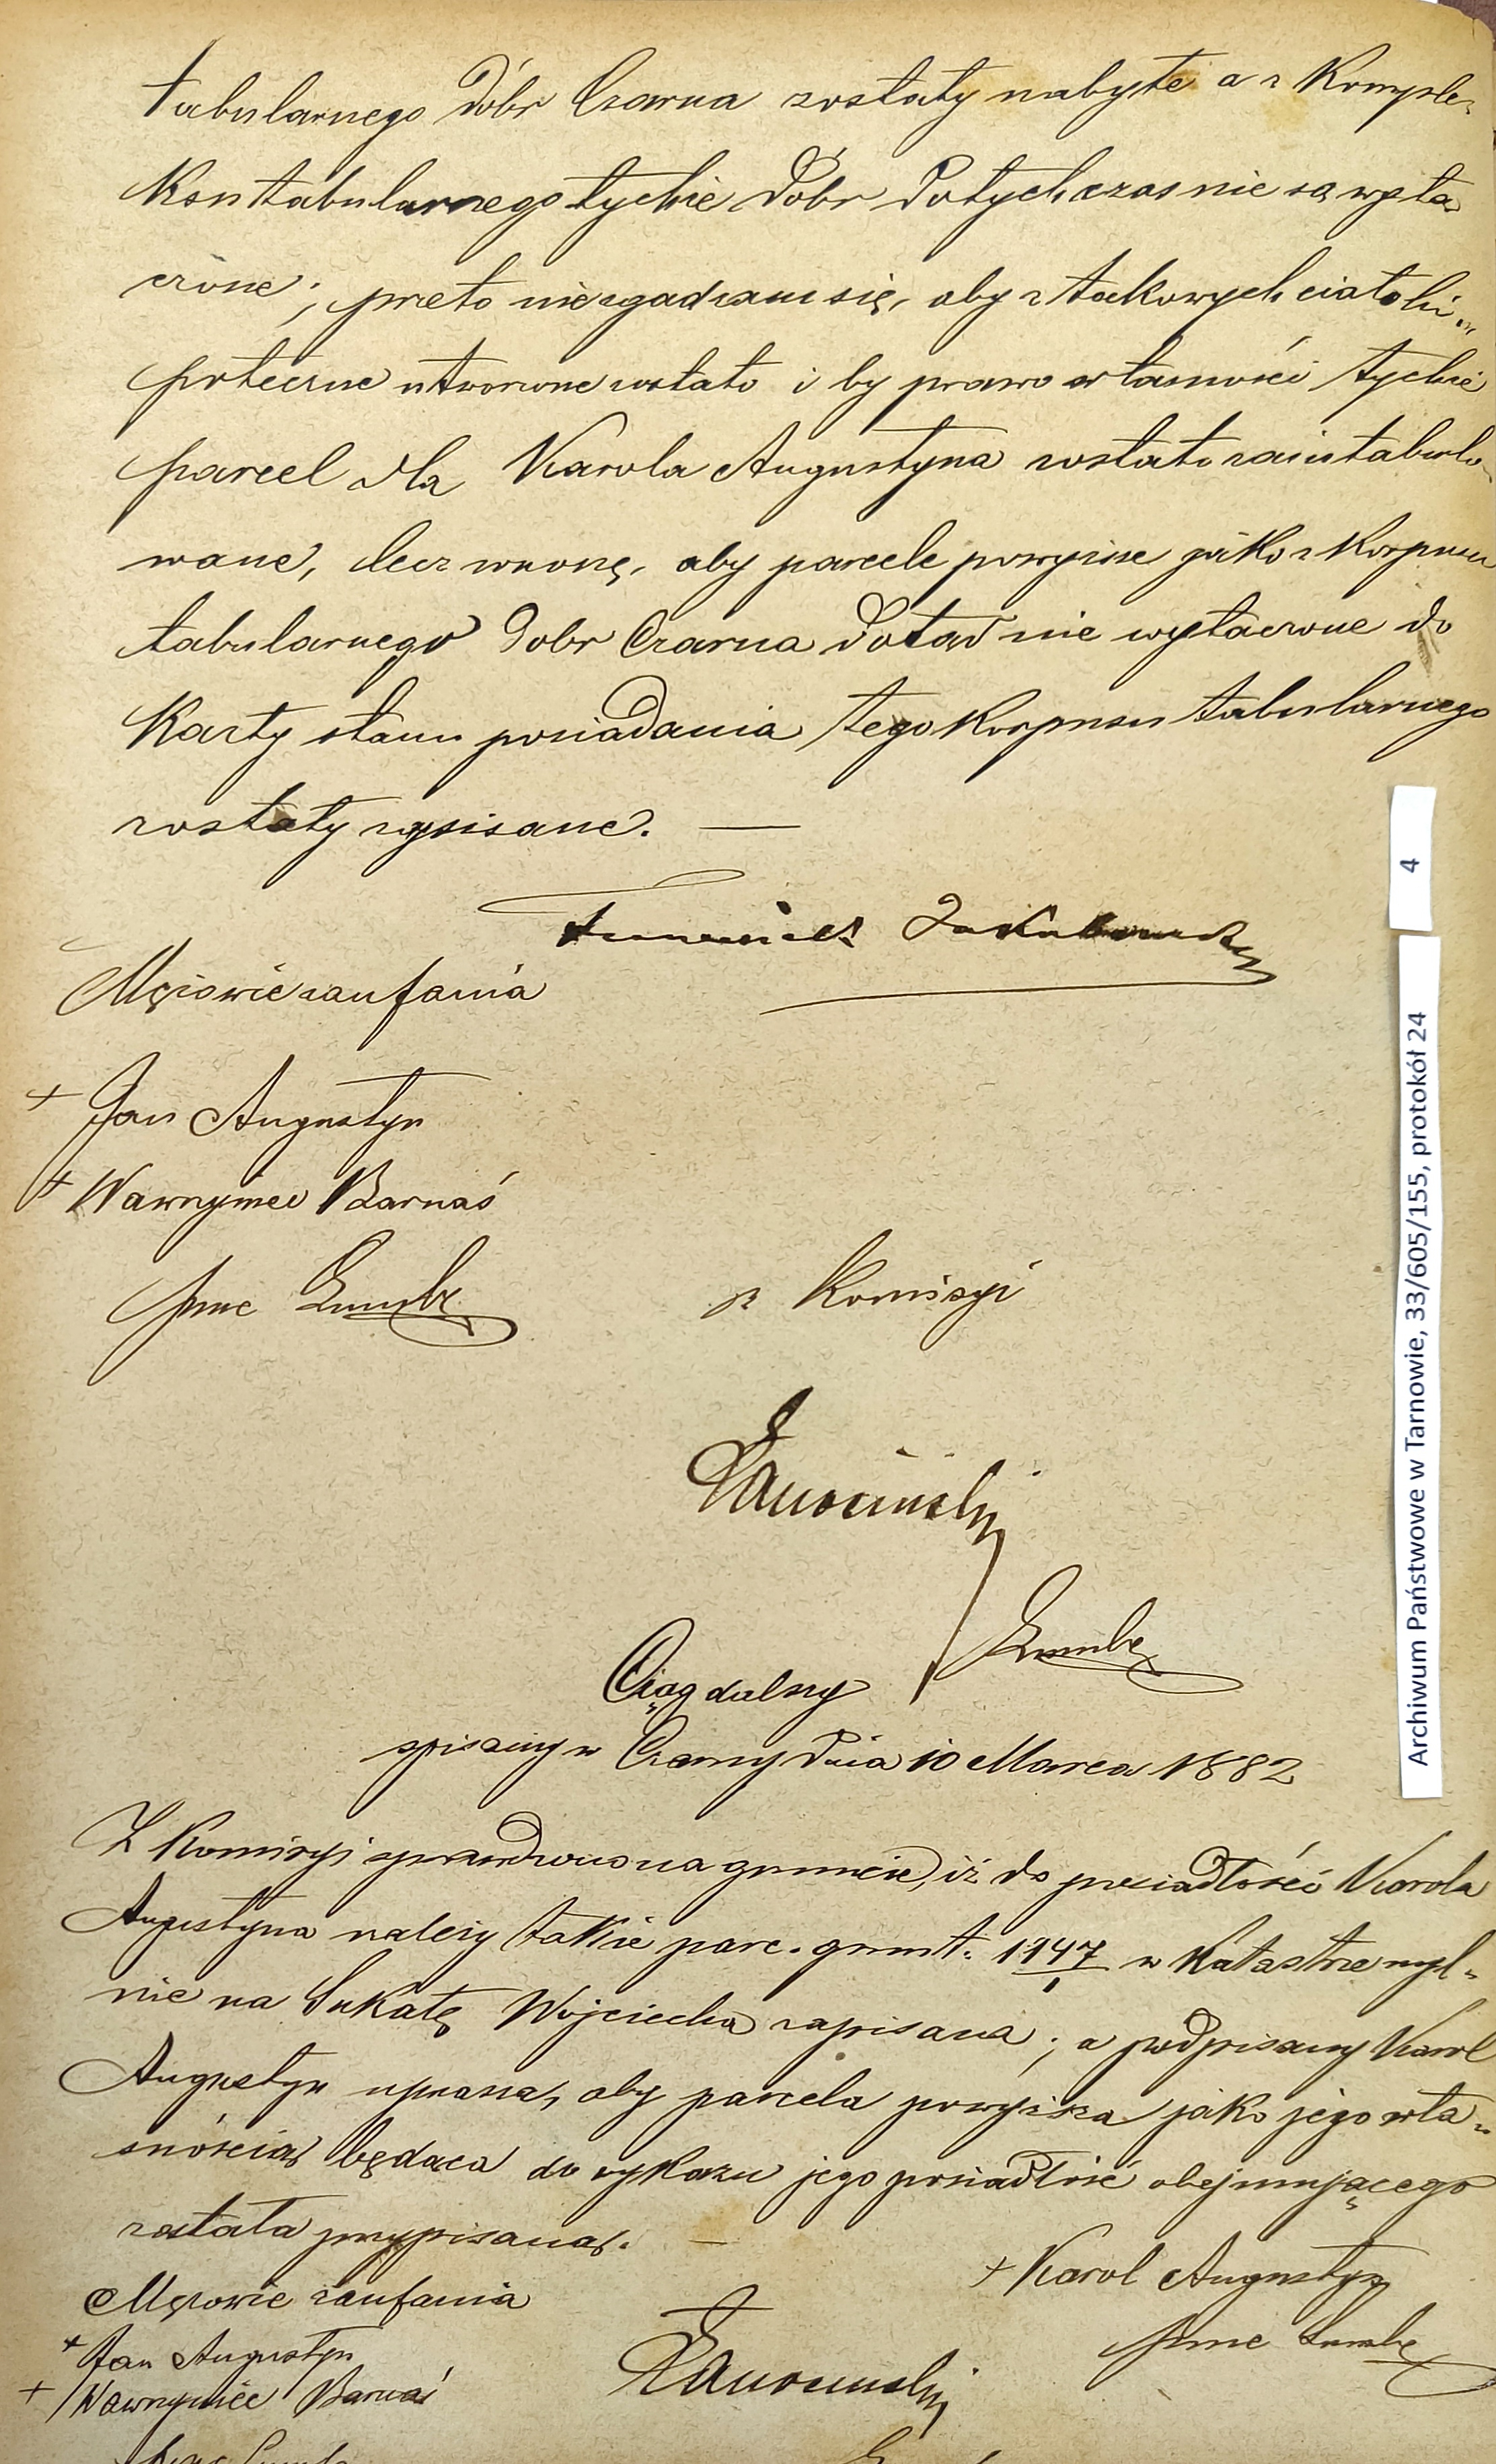 tabularnego dóbr Czarna zostały nabyte a z Komple-
Ksu tabularnego tychże dóbr dotychczas nie są wyłą-
czone; przeto nie zgadzam się, aby z takowych ciało hi-
poteczne utworzone zostało i by prawo własności tychże
parcel dla Karola Augustyna zostało zaintabulo-
wane, lecz wnoszę, aby parcele powyższe jako z Korpusu
tabularnego dobr Czarna dotąd nie wyłączone do
Karty stanu posiadania tego Korpusu tabularnego
zostały zapisane. —
Mężowie zaufania
+ Jan Augustyn
+ Wawrzyniec Barnaś
z Komisyi
Ciąg dalszy
spisany w Czarny dnia 10 Marca 1882
Z Komisyi sprawdzono na gruncie, iż do posiadłości Karola
Augustyna należy także parc. grunt. 1147/1 w Katastrze myl-
nie na Sukatę Wojciecha zapisana; a podpisany Karol
Augustyn uprasza, aby parcela powyższa jako jego wła-
snością będąca do wykazu jego posiadłość obejmującego
została przypisaną. —
+ Karol Augustyn
Mężowie zaufania
+ Jan Augustyn
+ Wawrzyniec Barnaś
4
Archiwum Państwowe w Tarnowie, 33/605/155, protokół 24